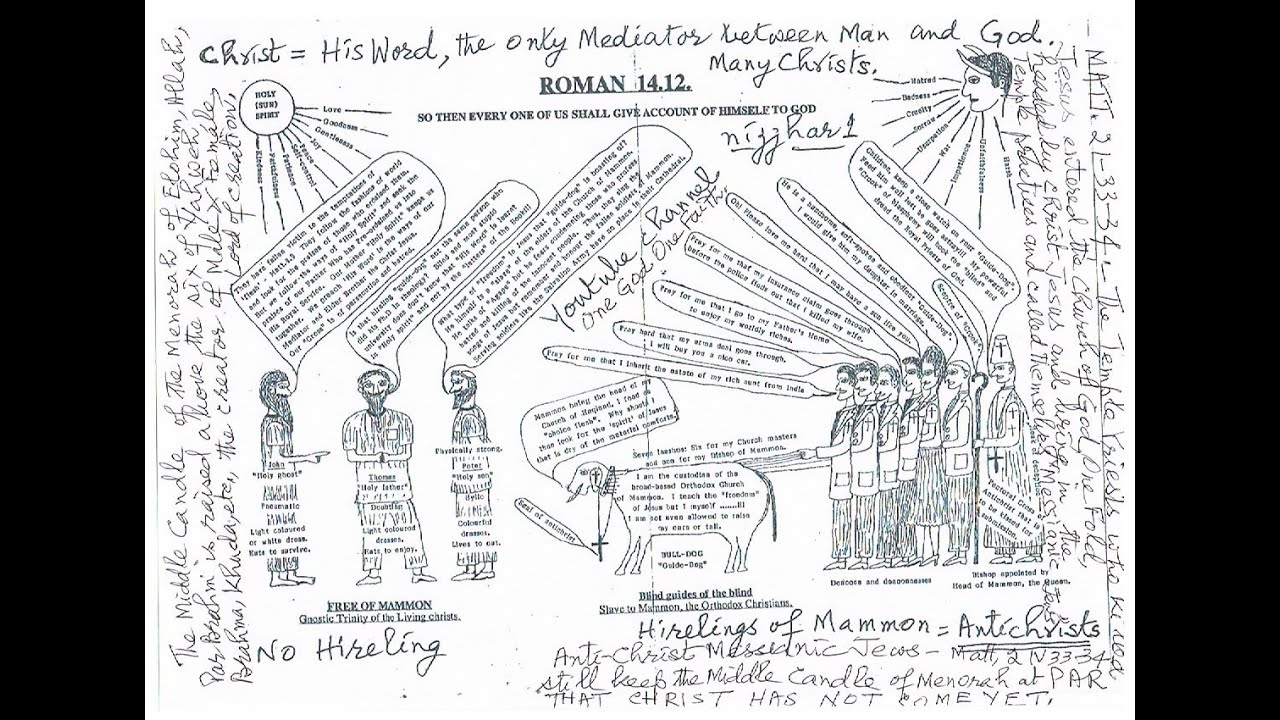 Christ = His Word, the only Mediator between Man and God.
Many Christs.
ROMAN 14.12.
SO THEN EVERY ONE OF US SHALL GIVE ACCOUNT OF HIMSELF TO GOD
nijjhar1
Youtube channel
One God One Faith.
HOLY
(SUN)
SPIRIT
Love
Goodness
Gentleness
Joy
Peace
Patience
Kindness
Hatred
Badness
Cruelty
Sorrow
Usurpation
War
Impatience
Unfaithfulness
Harsh
The Middle Candle of the Menorah of Elohim, Allah,
ParBrahm its raised above the six of Yahweh,
Brahma, Khudah, etc, the creator of Male & Female,
Lord of creation.
- MATT. 21-33-34:- The Temple Priests who killed
Jesus entered the Church of God, One Fold,
headed by Christ Jesus and
and called themselves Messianic Jews
They have fallen victim to the temptations of
"flesh" or Mammon. They follow the fashions of world
and look for the praises of those who ordained them.
But we follow the dictates of "Holy Spirit" and seek the
praises of our Father Who has pre-ordained us into
His Royal Services. Our Mother "Holy Spirit" keeps us
together. We preach His Word in the ways of our
Elder Brother and the Christ Jesus.
Our "Guna" is of
Is that hireling "guide-dog" not the same person who
did his Ph.D in theology and that stupid
university does not know that "His Word" is learnt
in "Holy Spirit" and not by the "letters" of the Book!!!
What type of "freedom" in Jesus that "guide-dog" is boasting of?
He himself is a "slave" of the elders of the Church of Mammon.
He talks of "Agape" but he fears condemning those who profess
hatred and killing of the innocent people. Thus, they sing the
songs of Jesus but remember and honour the fallen soldiers of Mammon.
Serving soldiers like the Salvation Army have no place in their Cathedral.
Oh! Please love me hard that I may have a son like you.
He is a handsome, soft-spoken and obedient "Guide-Dog"
I would give him my daughter in marriage.
Children, keep a close watch on our "Guide-Dog"
Feed him well lest he goes astray!!! My powerful
"Crook" of blasphemy will hook the "blind" and
dread the Royal Priests of God.
Sceptre of "Crook"
Pray for me that my insurance claim goes through
before the police finds out that I killed my wife.
Pray for me that I go to my Father's Home
to enjoy my worldly riches.
Pray hard that my arms deal goes through,
I will buy you a nice car.
Pray for me that I inherit the estate of my rich aunt from India
Mammon being the head of my
Church of England, I feed on
"choice flesh". Why should I
than look for the 'spirit' of Jesus
that is dry of the material comforts.
Seven leashes: Six for my Church masters
and one for my Bishop of Mammon.
I am the custodian of the
broad-based Orthodox Church
of Mammon. I teach the "freedom"
of Jesus but I myself .......!!!
I am not even allowed to raise
my ears or tail.
Seal of antichrists
BULL-DOG
"Guide-Dog"
John
"Holy ghost"
Pneumatic
Light coloured
or white dress.
Eats to survive.
Thomas
"Holy father"
Doubting
Light coloured
dresses.
Eats to enjoy.
Physically strong.
Peter
"Holy son"
Hylic
Colourful
dresses.
Lives to eat.
Deacons and deaconnesses
Bishop appointed by
Head of Mammon, the Queen.
Pectoral cross of
Antichrist that is
to be kissed for
FREE OF MAMMON
Gnostic Trinity of the Living christs.
NO Hireling
Blind guides of the blind
Slave to Mammon, the Orthodox Christians.
Hirelings of Mammon = Antichrists
Anti-Christ Messianic Jews - Matt, 21V33-34
still keep the Middle Candle of Menorah at PAR
THAT CHRIST HAS NOT COME YET.